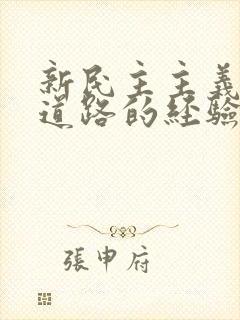 新民主主義
道路的経験
張申府